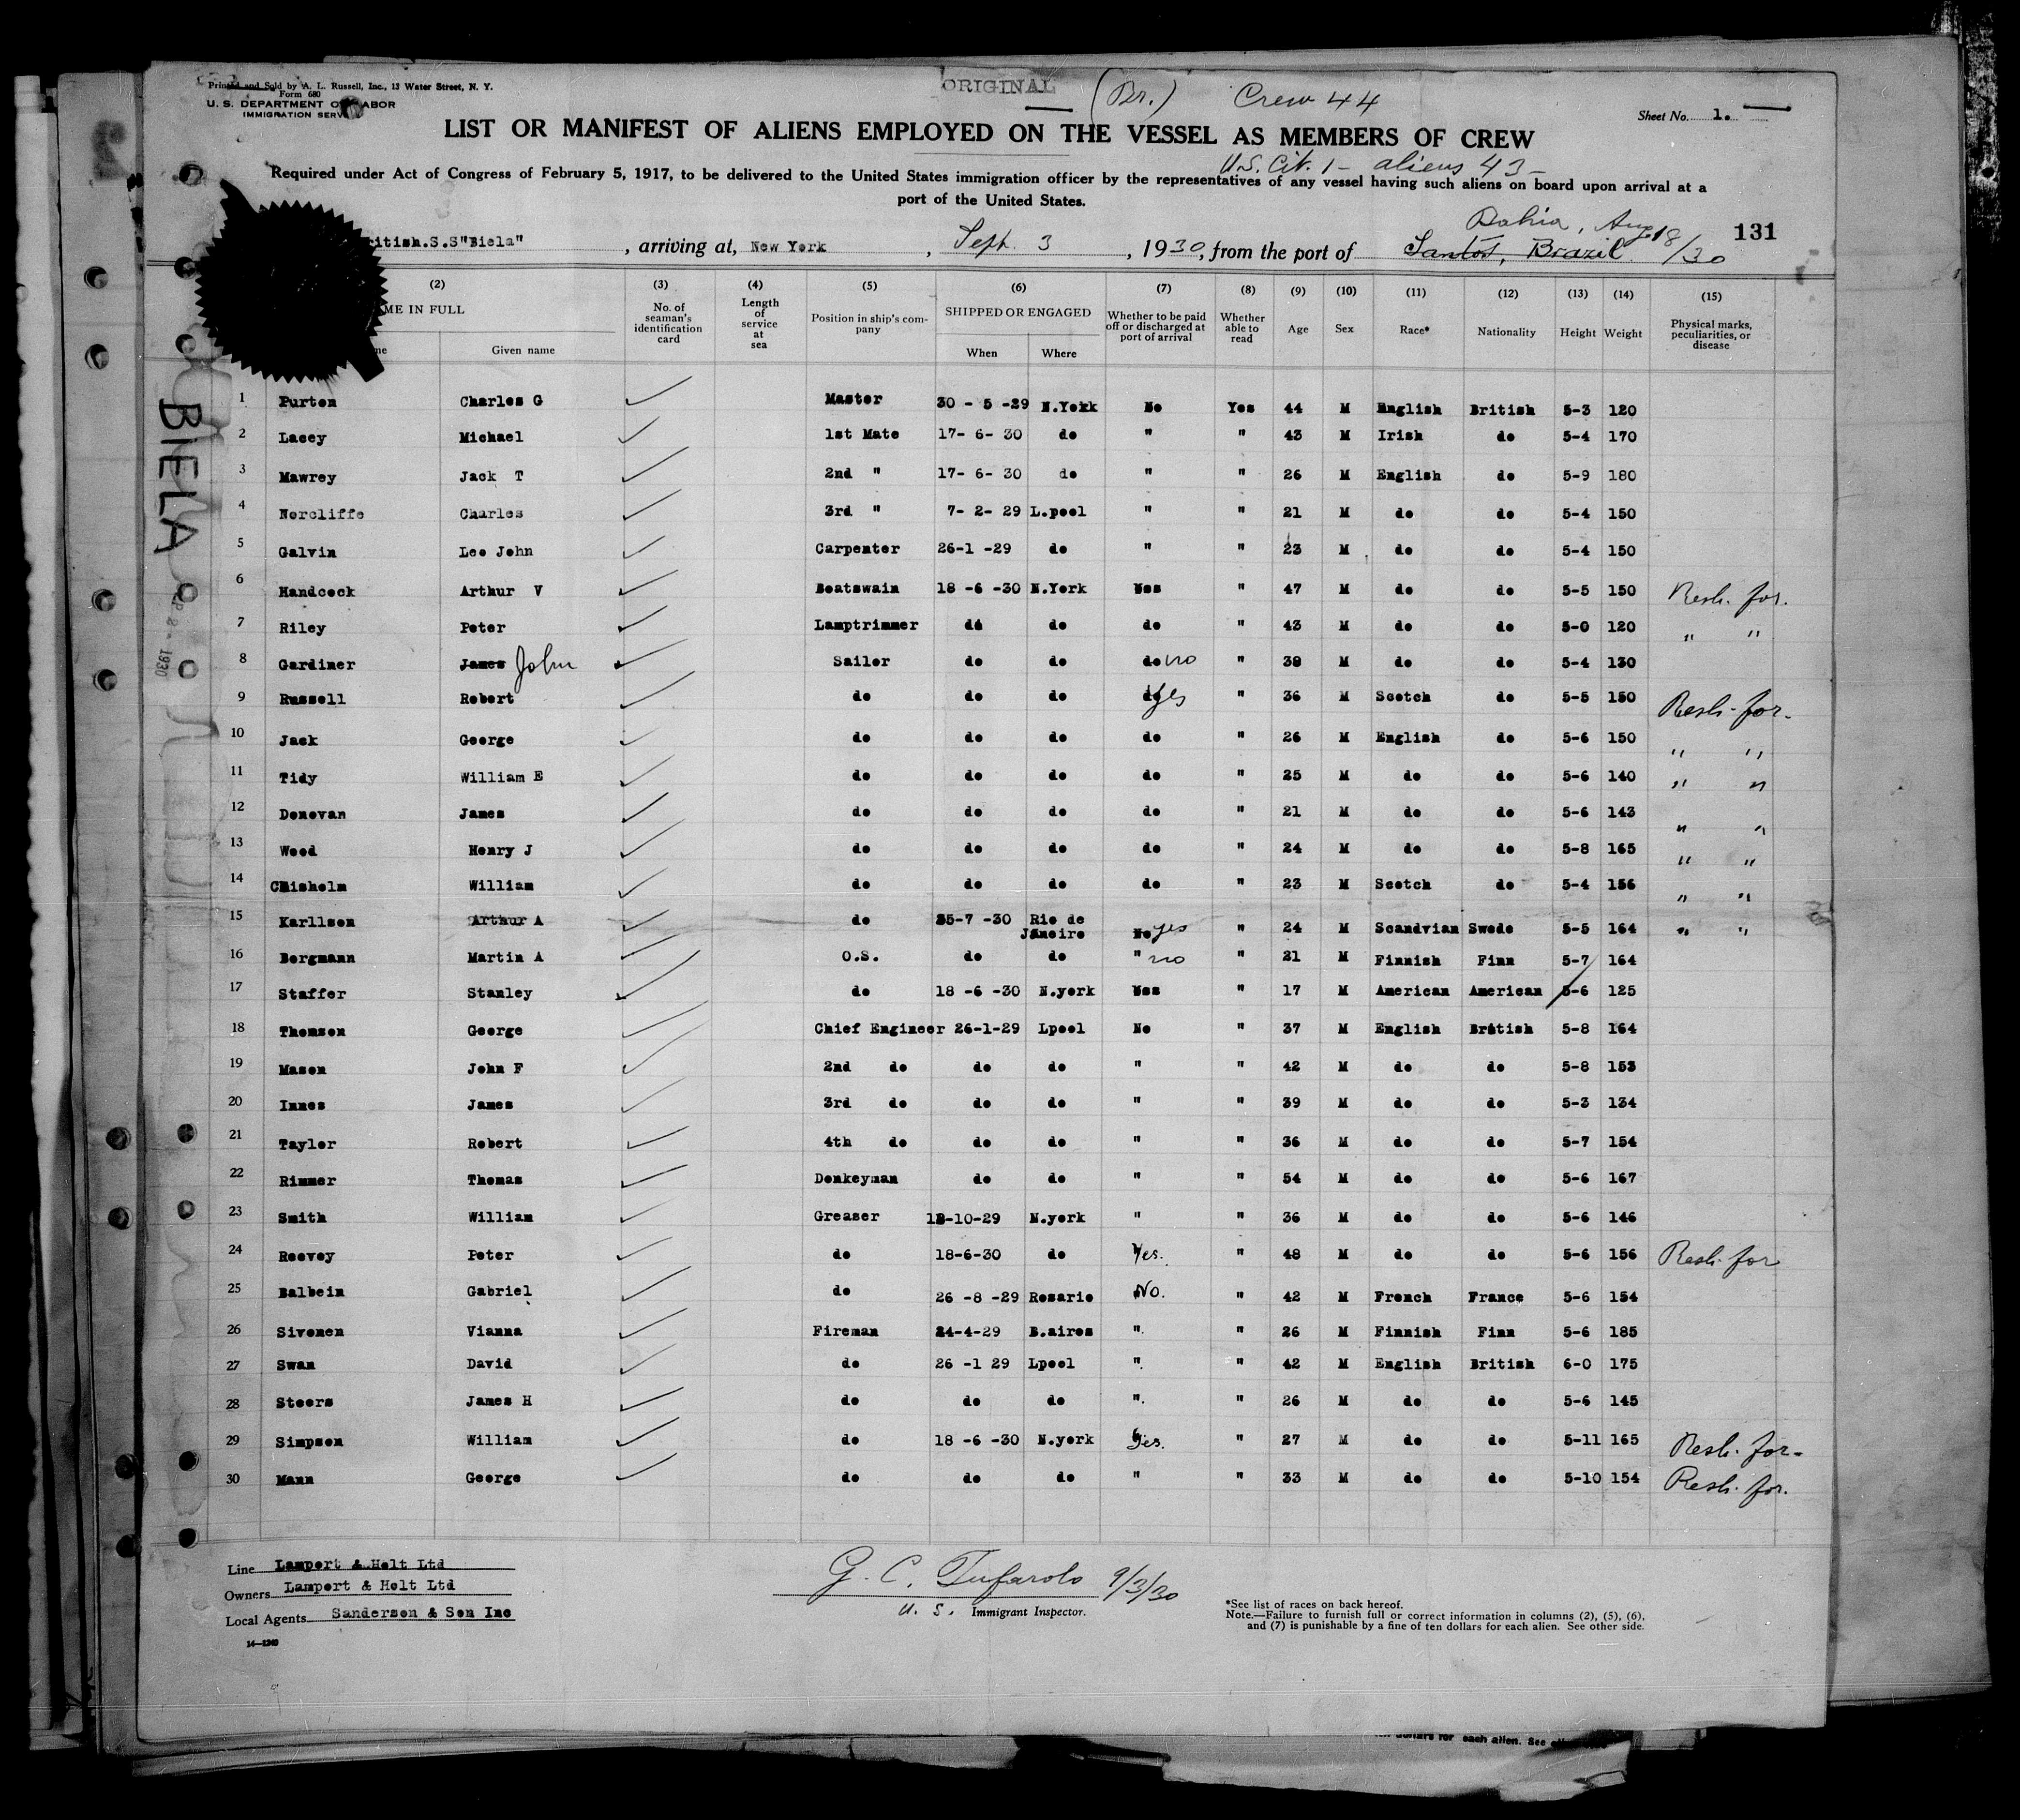 Printed and Sold by A. L. Russell, Inc., 13 Water Street, N. Y.
Form 680
U. S. DEPARTMENT OF LABOR
IMMIGRATION SERV
ORIGINAL (Br.) Crew 44
Sheet No. 1.
LIST OR MANIFEST OF ALIENS EMPLOYED ON THE VESSEL AS MEMBERS OF CREW
U.S. Cit. 1 - aliens 43 -
Required under Act of Congress of February 5, 1917, to be delivered to the United States immigration officer by the representatives of any vessel having such aliens on board upon arrival at a
port of the United States.
Bahia, Aug 18/30 131
ritish.S.S"Biela" , arriving at, New York , Sept 3 , 1930, from the port of Santos, Brazil
(2) (3) (4) (5) (6) (7) (8) (9) (10) (11) (12) (13) (14) (15)
ME IN FULL
Given name
No. of seaman's identification card
Length of service at sea
Position in ship's company
SHIPPED OR ENGAGED
When Where
Whether to be paid off or discharged at port of arrival
Whether able to read
Age Sex Race* Nationality Height Weight
Physical marks, peculiarities, or disease
BIELA
1 Purton Charles G Master 30 - 5 -29 N.York No Yes 44 M English British 5-3 120
2 Lacey Michael 1st Mate 17- 6- 30 do " " 43 M Irish do 5-4 170
3 Mawrey Jack T 2nd " 17- 6- 30 do " " 26 M English do 5-9 180
4 Norcliffe Charles 3rd " 7- 2- 29 L.pool " " 21 M do do 5-4 150
5 Galvin Leo John Carpenter 26-1 -29 do " " 23 M do do 5-4 150
6 Handcock Arthur V Boatswain 18 -6 -30 N.York Yes " 47 M do do 5-5 150 Resh. for.
7 Riley Peter Lamptrimmer do do do " 43 M do do 5-0 120 " "
8 Gardiner James John Sailor do do do no " 38 M do do 5-4 130
9 Russell Robert do do do do yes " 36 M Scotch do 5-5 150 Resh. for.
10 Jack George do do do do " 26 M English do 5-6 150 " "
11 Tidy William E do do do do " 25 M do do 5-6 140 " "
12 Donovan James do do do do " 21 M do do 5-6 143 " "
13 Wood Henry J do do do do " 24 M do do 5-8 165 " "
14 Chisholm William do do do do " 23 M Scotch do 5-4 156 " "
15 Karllson Arthur A do 25-7 -30 Rio de Janeiro No yes " 24 M Scandvian Swede 5-5 164 " "
16 Bergmann Martin A O.S. do do " no " 21 M Finnish Finn 5-7 164
17 Staffer Stanley do 18 -6 -30 N.york Yes " 17 M American American 5-6 125
18 Thomson George Chief Engineer 26-1-29 Lpool No " 37 M English British 5-8 164
19 Mason John F 2nd do do do " " 42 M do do 5-8 153
20 Innes James 3rd do do do " " 39 M do do 5-3 134
21 Taylor Robert 4th do do do " " 36 M do do 5-7 154
22 Rimmer Thomas Donkeyman do do " " 54 M do do 5-6 167
23 Smith William Greaser 12-10-29 N.york " " 36 M do do 5-6 146
24 Reevey Peter do 18-6-30 do Yes. " 48 M do do 5-6 156 Resh. for
25 Balbein Gabriel do 26 -8 -29 Rosario No. " 42 M French France 5-6 154
26 Sivonen Vianna Fireman 24-4-29 B.aires " " 26 M Finnish Finn 5-6 185
27 Swan David do 26 -1 29 Lpool " " 42 M English British 6-0 175
28 Steers James H do do do " " 26 M do do 5-6 145
29 Simpson William do 18 -6 -30 N.york Yes. " 27 M do do 5-11 165 Resh. for.
30 Mann George do do do " " 33 M do do 5-10 154 Resh. for.
Line Lampert & Holt Ltd
Owners Lampert & Holt Ltd
Local Agents Sanderson & Son Inc
14—1240
G. C. Tufarolo 9/3/30
U. S. Immigrant Inspector.
*See list of races on back hereof.
Note.—Failure to furnish full or correct information in columns (2), (5), (6),
and (7) is punishable by a fine of ten dollars for each alien. See other side.